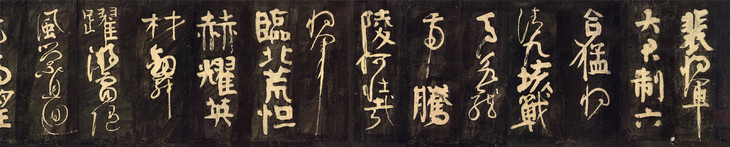 裴將軍
大君制六
合猛將
清九垓戰
馬若龍
虎騰
陵何壯哉
將軍
臨北荒恒
赫耀英
材劍舞
躍游電隨
風縈且迴
高望